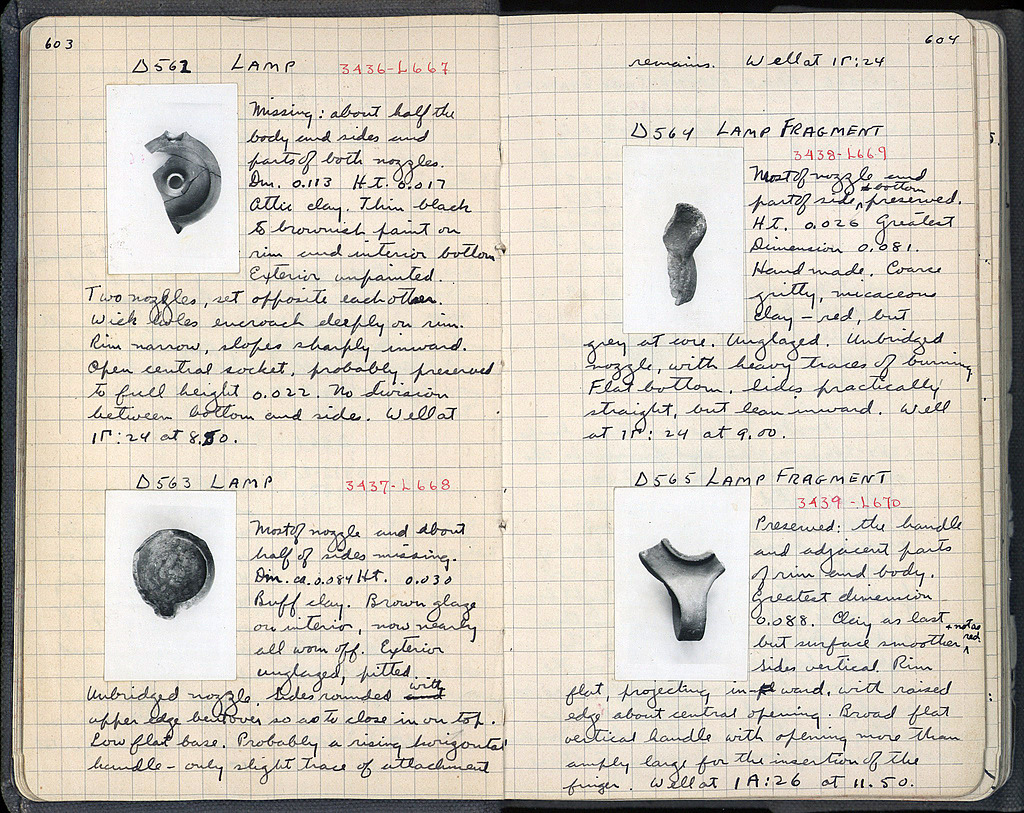 603
D562 LAMP 3436-L667
Missing: about half the
body and sides and
parts of both nozzles.
Dm. 0.113 Ht. 0.017
Attic clay. Thin black
to brownish paint on
rim and interior bottom
Exterior unpainted.
Two nozzles, set opposite each other.
Wick holes encroach deeply on rim.
Rim narrow, slopes sharply inward.
Open central socket, probably preserved
to full height 0.022. No division
between bottom and sides. Well at
ΙΓ:24 at 8.50.
D563 LAMP 3437-L668
Most of nozzle and about
half of sides missing.
Dm. ca. 0.084 Ht. 0.030
Buff clay. Brown glaze
on interior, now nearly
all worn off. Exterior
unglazed, pitted.
Unbridged nozzle. Sides rounded and with
upper edge bent over so as to close in on top.
Low flat base. Probably a rising horizontal
handle - only slight trace of attachment
604
remains. Well at ΙΓ:24
D564 LAMP FRAGMENT
3438-L669
Most of nozzle and
part of side + bottom preserved.
Ht. 0.026 Greatest
Dimension 0.081.
Handmade. Coarse
gritty, micaceous
clay - red, but
grey at core. Unglazed. Unbridged
nozzle, with heavy traces of burning
Flat bottom, sides practically
straight, but lean inward. Well
at ΙΓ:24 at 9.00.
D565 LAMP FRAGMENT
3439-L670
Preserved: the handle
and adjacent parts
of rim and body.
Greatest dimension
0.088. Clay as last + not as red
but surface smoother,
Sides vertical. Rim
flat, projecting inward, with raised
edge about central opening. Broad flat
vertical handle with opening more than
amply large for the insertion of the
finger. Well at ΙΑ:26 at 11.50.